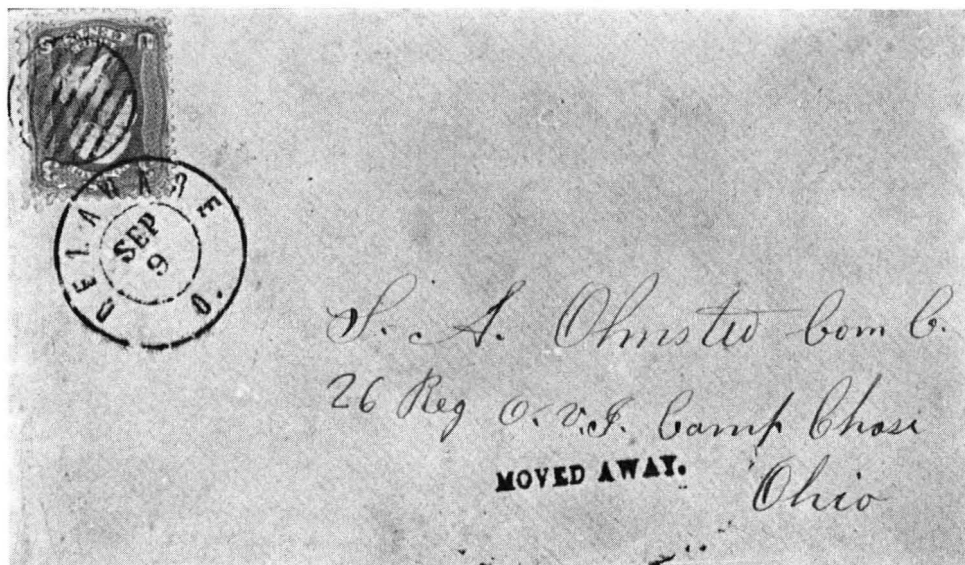 DELAWARE O.
SEP
9
S. A. Olmsted Com C.
26 Reg O. V. I. Camp Chase
MOVED AWAY.
Ohio